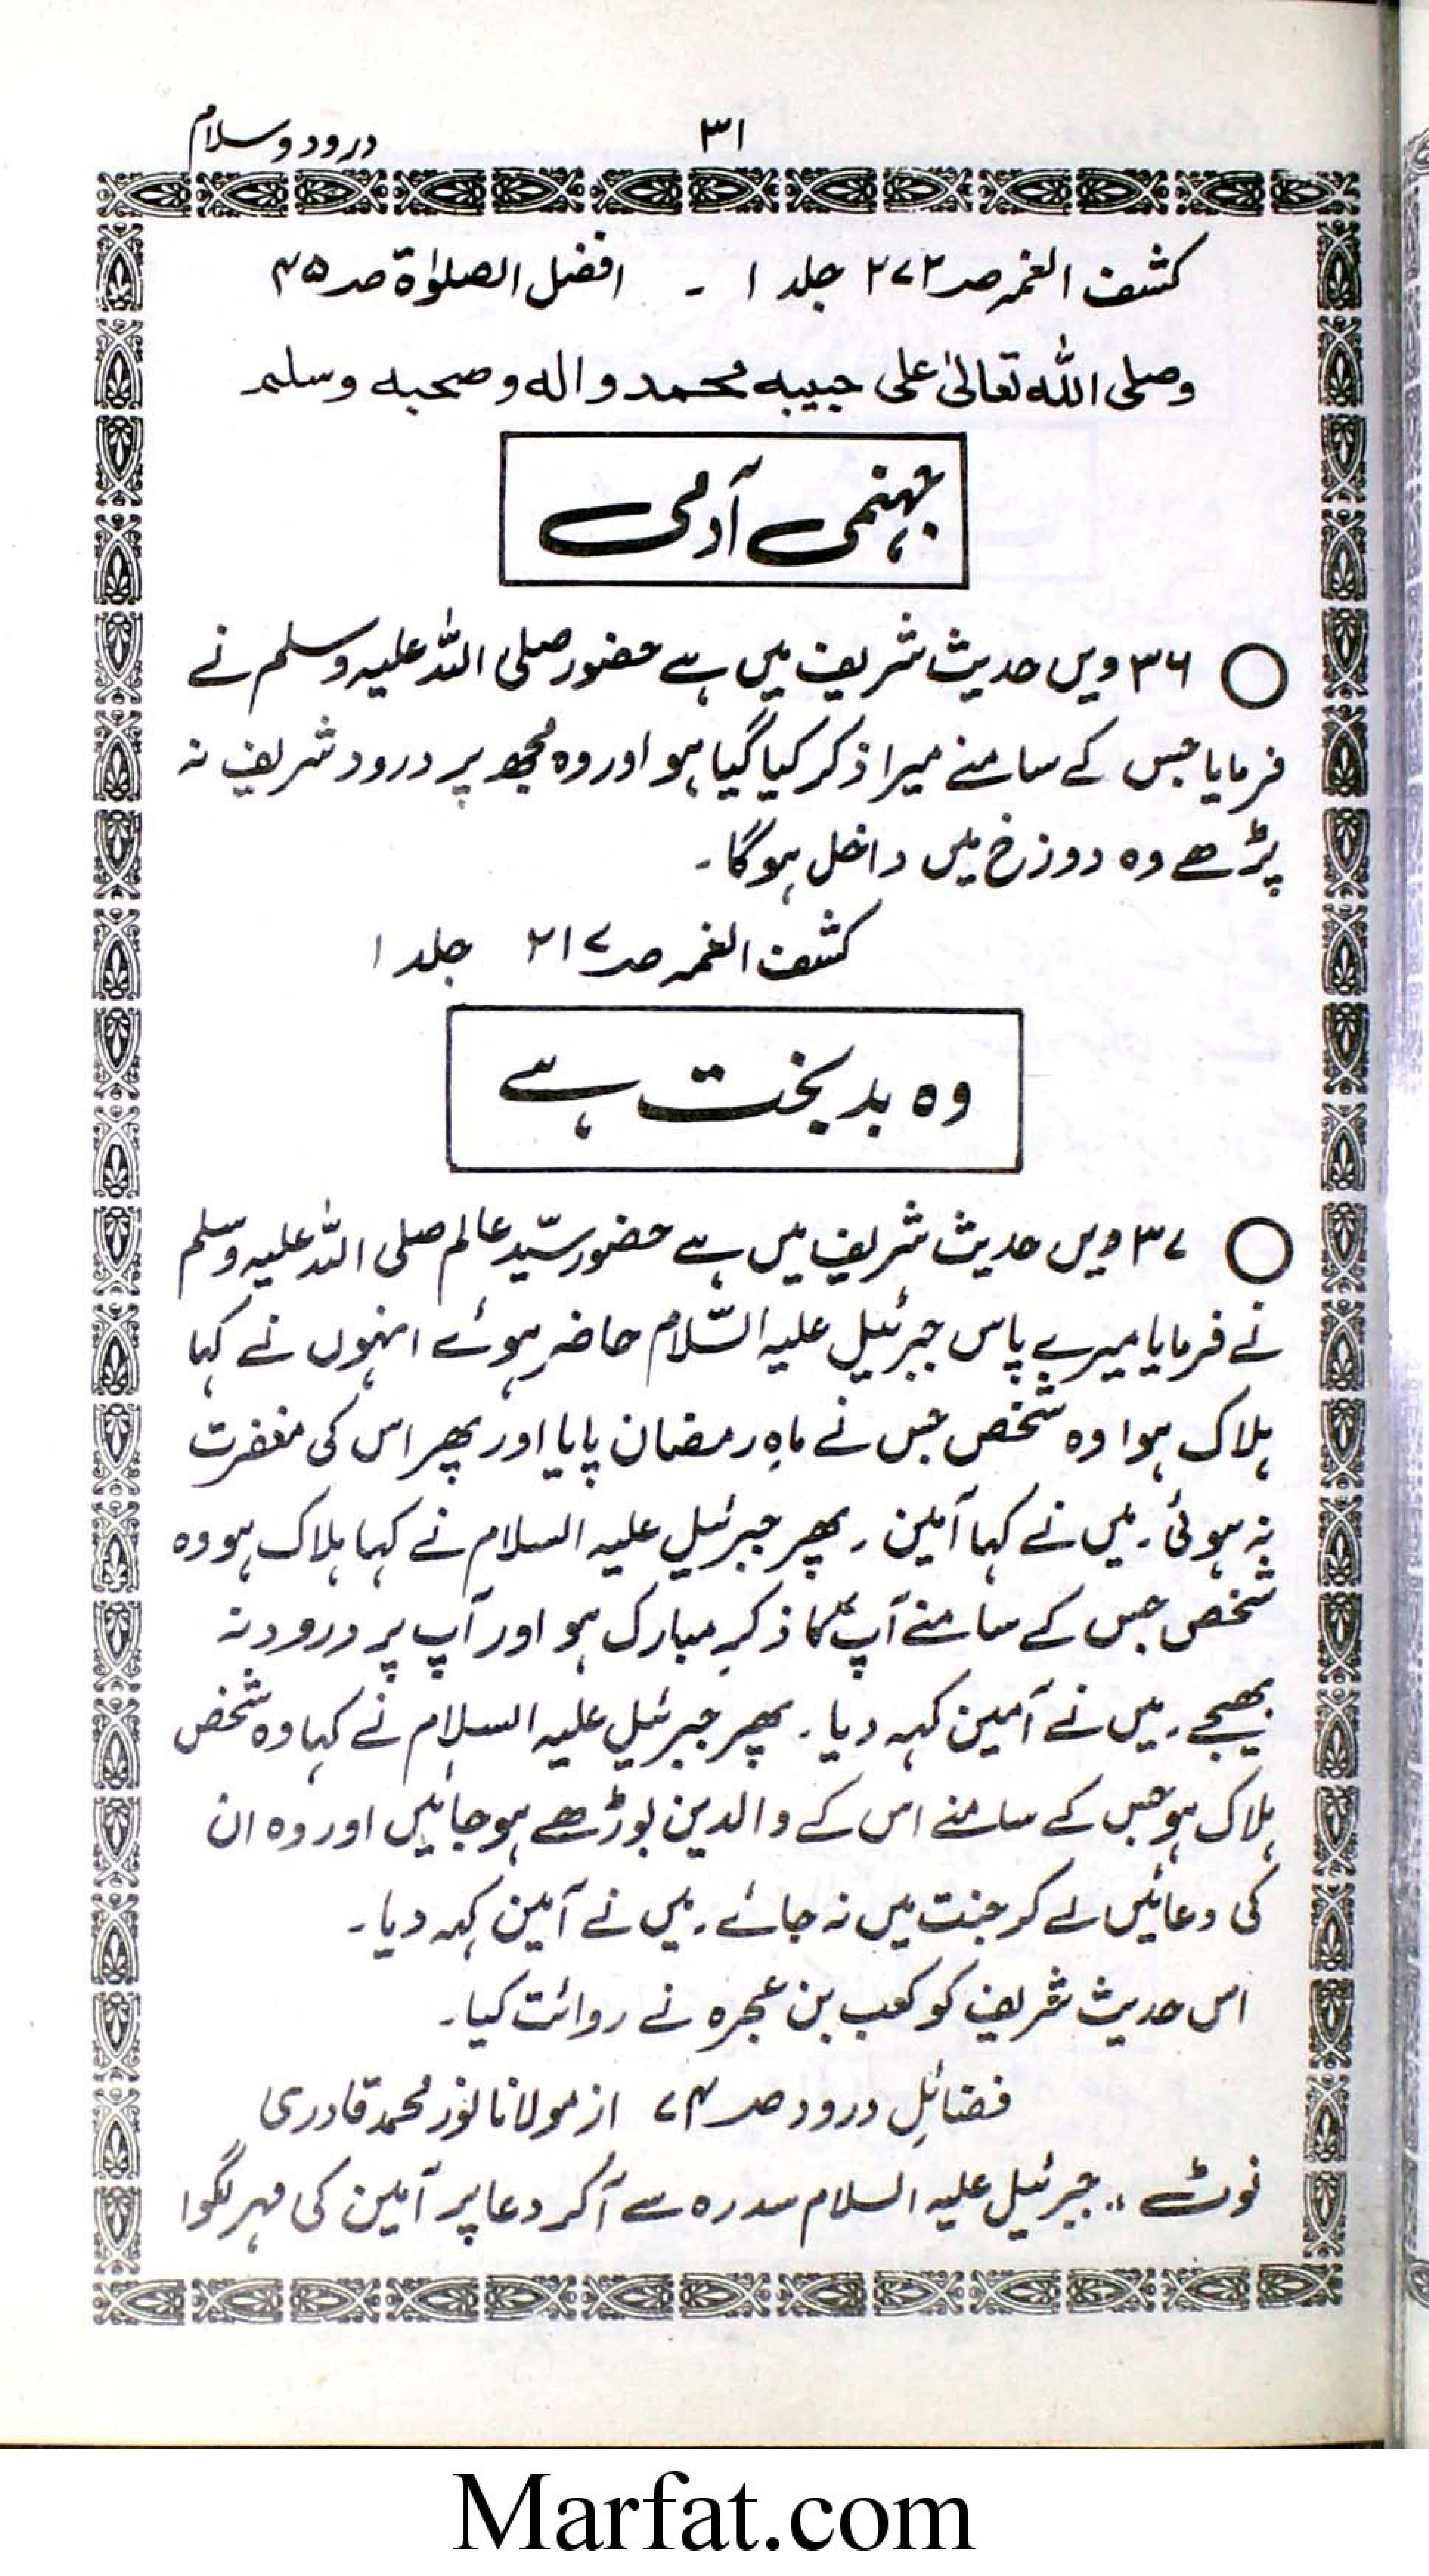 درود وسلام
۳۱
کشف الغمہ صہ ۲۷۲ جلد ۱ ۔ افضل الصلوٰۃ صہ ۴۵
وصلی اللہ تعالیٰ علی حبیبہ محمد والہ وصحبہ وسلم
جہنمی آدمی
۳۶ ویں حدیث شریف میں ہے حضور صلی اللہ علیہ وسلم نے
فرمایا جس کے سامنے میرا ذکر کیا گیا ہو اور وہ مجھ پر درود شریف نہ
پڑھے وہ دوزخ میں داخل ہوگا۔
کشف الغمہ صہ ۲۱۷ جلد ۱
وہ بدبخت ہے
۳۷ ویں حدیث شریف میں ہے حضور سیّد عالم صلی اللہ علیہ وسلم
نے فرمایا میرے پاس جبرئیل علیہ السّلام حاضر ہوئے انہوں نے کہا
ہلاک ہوا وہ شخص جس نے ماہِ رمضان پایا اور پھر اس کی مغفرت
نہ ہوئی۔ میں نے کہا آمین۔ پھر جبرئیل علیہ السلام نے کہا ہلاک ہو وہ
شخص جس کے سامنے آپؐ کا ذکرِ مبارک ہو اور آپ پر درود نہ
بھیجے۔ میں نے آمین کہہ دیا۔ پھر جبرئیل علیہ السلام نے کہا وہ شخص
ہلاک ہو جس کے سامنے اس کے والدین بوڑھے ہو جائیں اور وہ ان
کی دعائیں لے کر جنت میں نہ جائے۔ میں نے آمین کہہ دیا۔
اس حدیث شریف کو کعب بن عجرہ نے روائت کیا۔
فضائلِ درود صہ ۷۴ از مولانا نور محمد قادری
نوٹ :۔ جبرئیل علیہ السلام سدرہ سے آکر دعا پر آمین کی مہر لگوا
Marfat.com